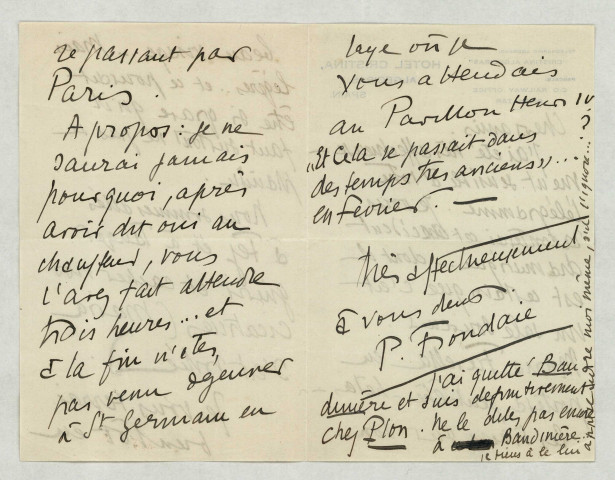 repassant par
Paris.
A propos : je ne
saurai jamais
pourquoi, après
avoir dit oui au
chauffeur, vous
l'avez fait attendre
trois heures... et
à la fin n'êtes,
pas venu déjeuner
à St Germain en
laye où je
vous attendais
au Pavillon Henri IV
"Et Cela se passait dans
des temps très anciens"....
en février. —
très affectueusement
à vous deux
P. Frondaie
J'ai quitté Bau
dinière et suis définitivement
chez Plon. Ne le dites pas encore
à Baudinière.
je tiens à le lui
apprendre moi même, s'il l'ignore...?